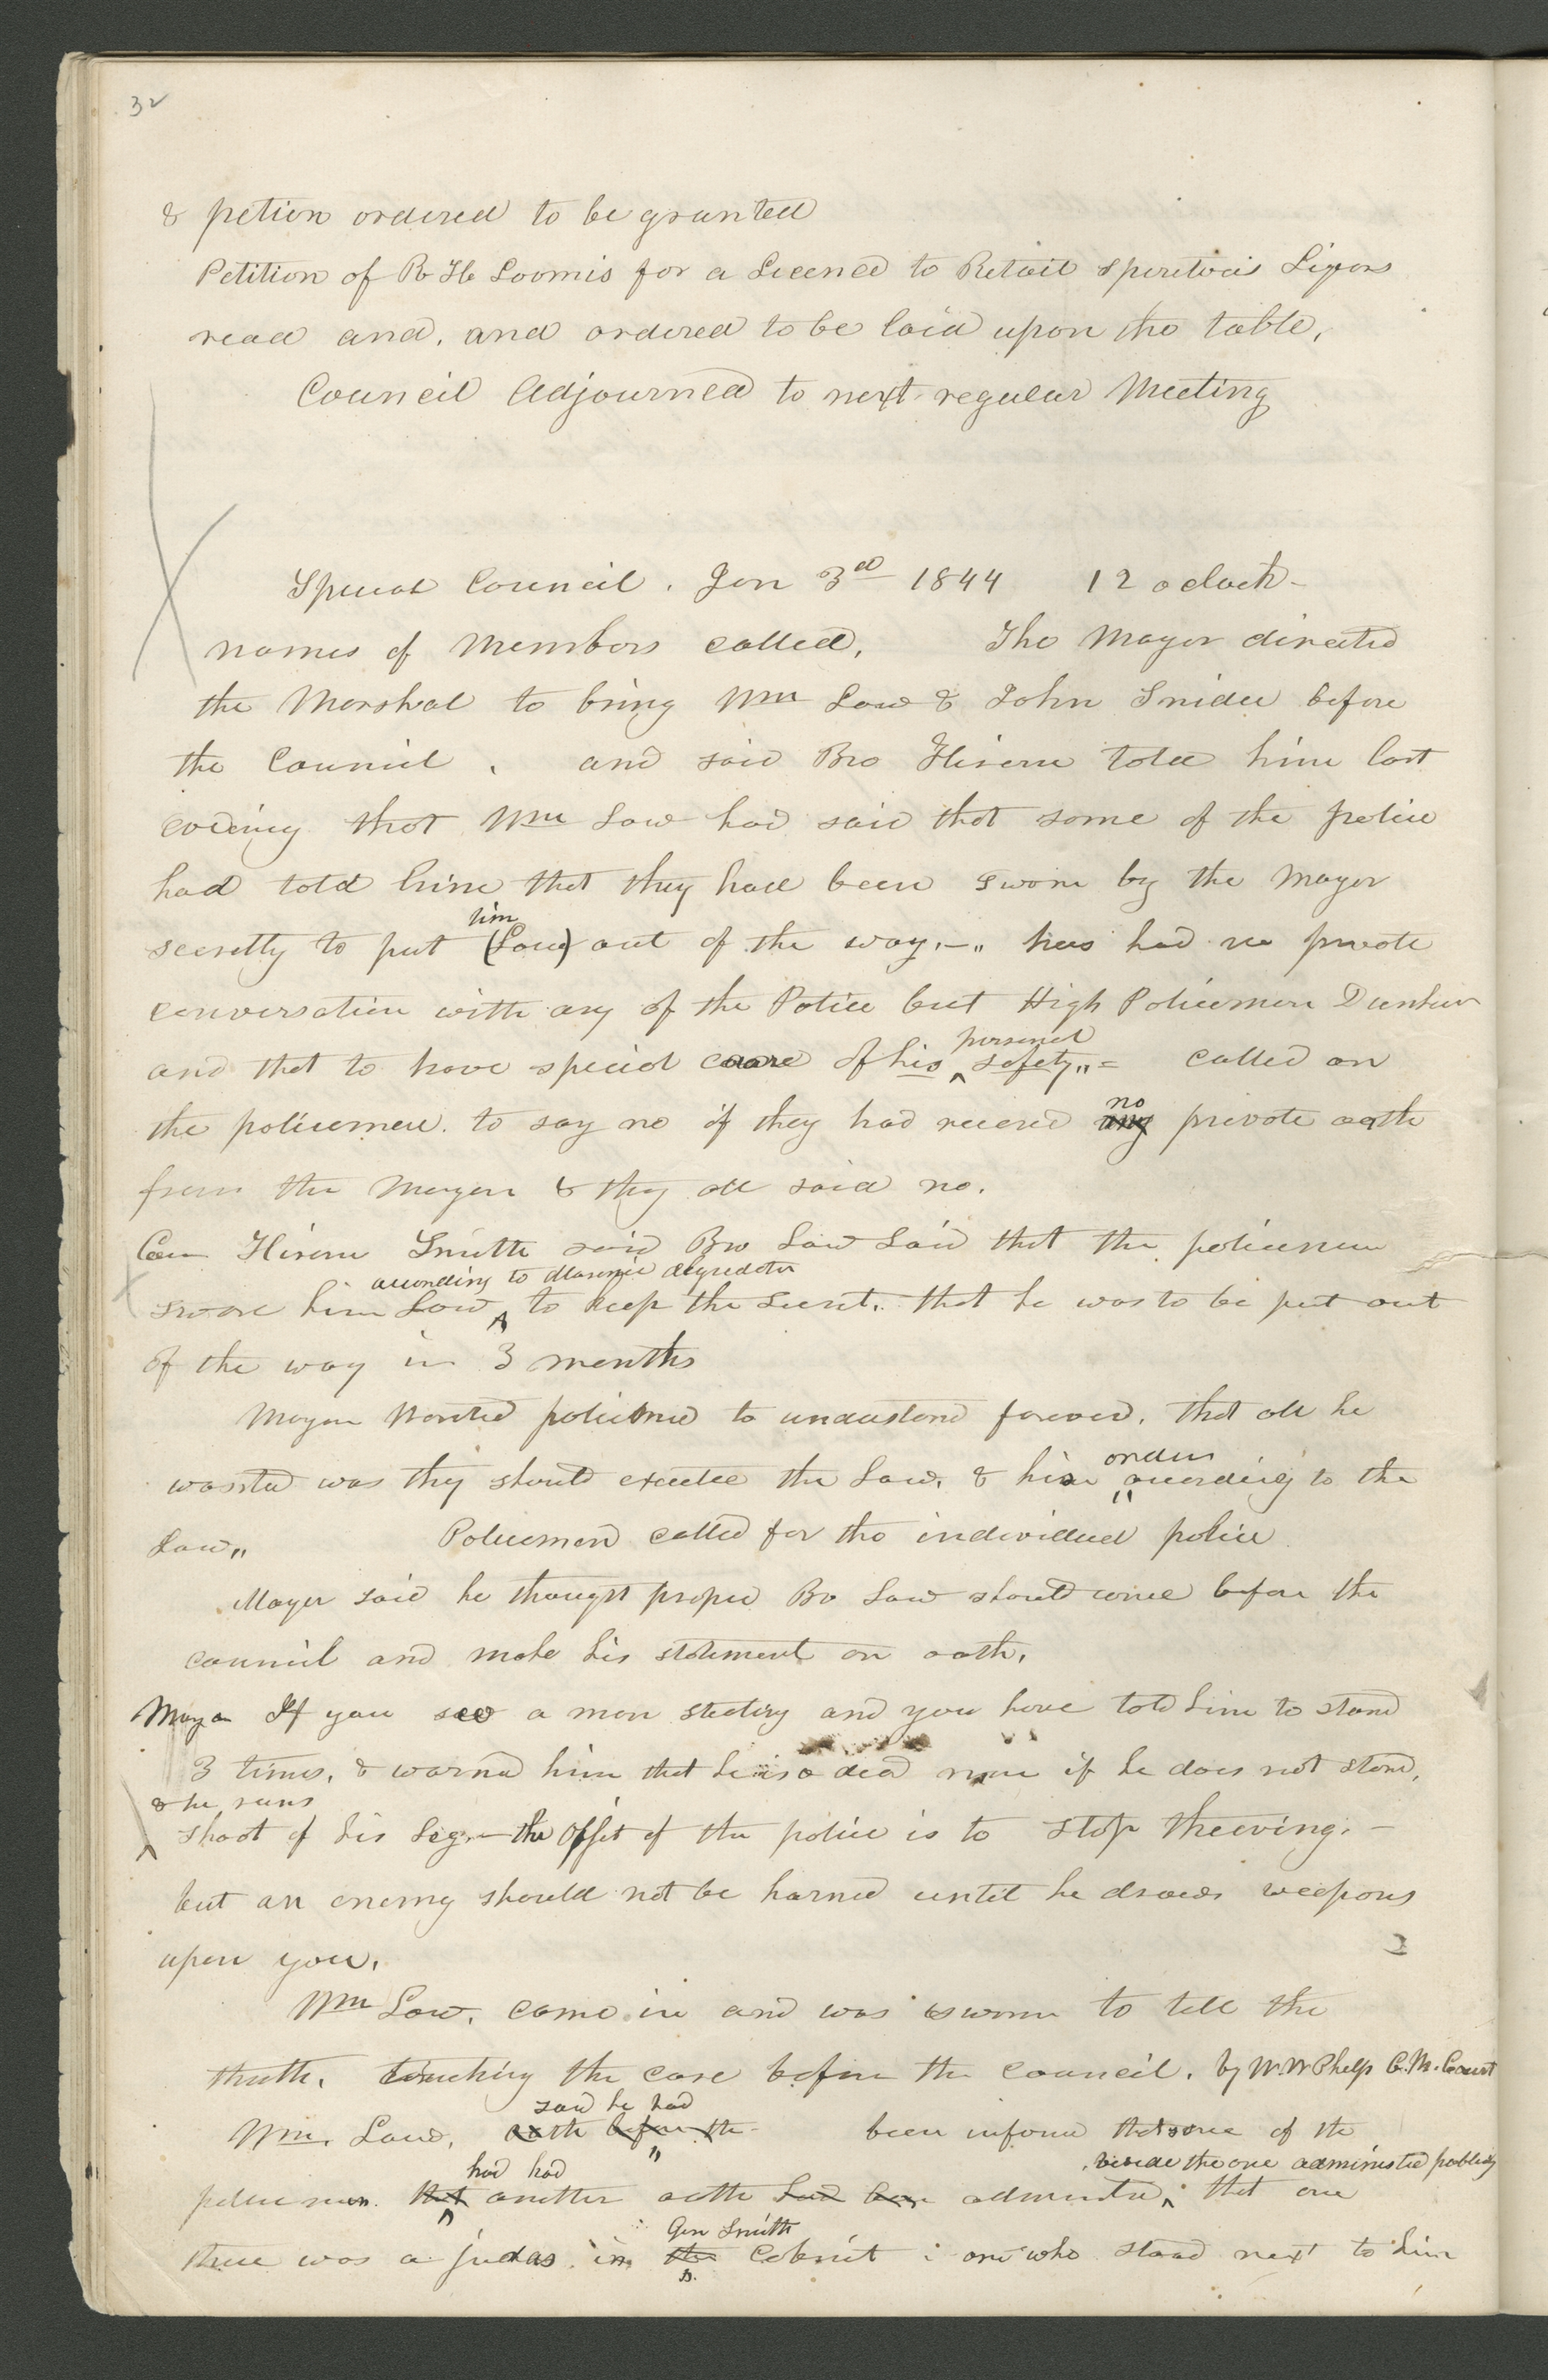 32
& petion ordered to be granted
Petition of R H Loomis for a Licence to Retail spiretous Liqors
read and, and ordered to be laid upon the table,
Council Adjourned to next regular Meeting
Special Council. Jan 3d 1844 12 oclock-
names of Members called, The Mayor directed
the Marshal to bring Wm Law & John Snider before
the Council. and said Bro Hiram told him last
evening that Wm Law had said that some of the police
had told him that they had been sworn by the Mayor
him
secretly to put (Law) out of the way.—" has had no private
conversation with any of the Police but High Policeman Dunham
personal
and that to have special care of his ^ safety" = called on
no
the policemen to say no if they had received any private oath
from the Mayor & they all said no.
Coun Hiram Smith said Bro Law said that the policeman
according to Masonic degredation
swore him Law ^ to keep the secret. that he was to be put out
of the way in 3 months
Mayor wanted policmed to understand forever, that all he
orders
wanted was they should execute the Law, & his according to the
Law" Policemen called for the individual police
Mayor said he thought proper Bo Law should come before the
council and make his statement on oath.
Mayor If you see a man stealing and you have told him to stand
3 times, & warned him that he is a dead man if he does not stand,
& he runs
^ shoot of his Legs—the offict of the police is to stop theeving.—
but an enemy should not be harmed until he draws weepons
upon you.
Wm Law, came in and was sworn to tell the
truth, touching the case before the council. by W. W Phelps C. M. Court
said he had
Wm. Law, oath before the been informd that some of the
had had beside the one administed publicly
policemen that another oath had been administed ^ that one
Gen Smith
there was a judas in the Cabnit : one who stood next to him